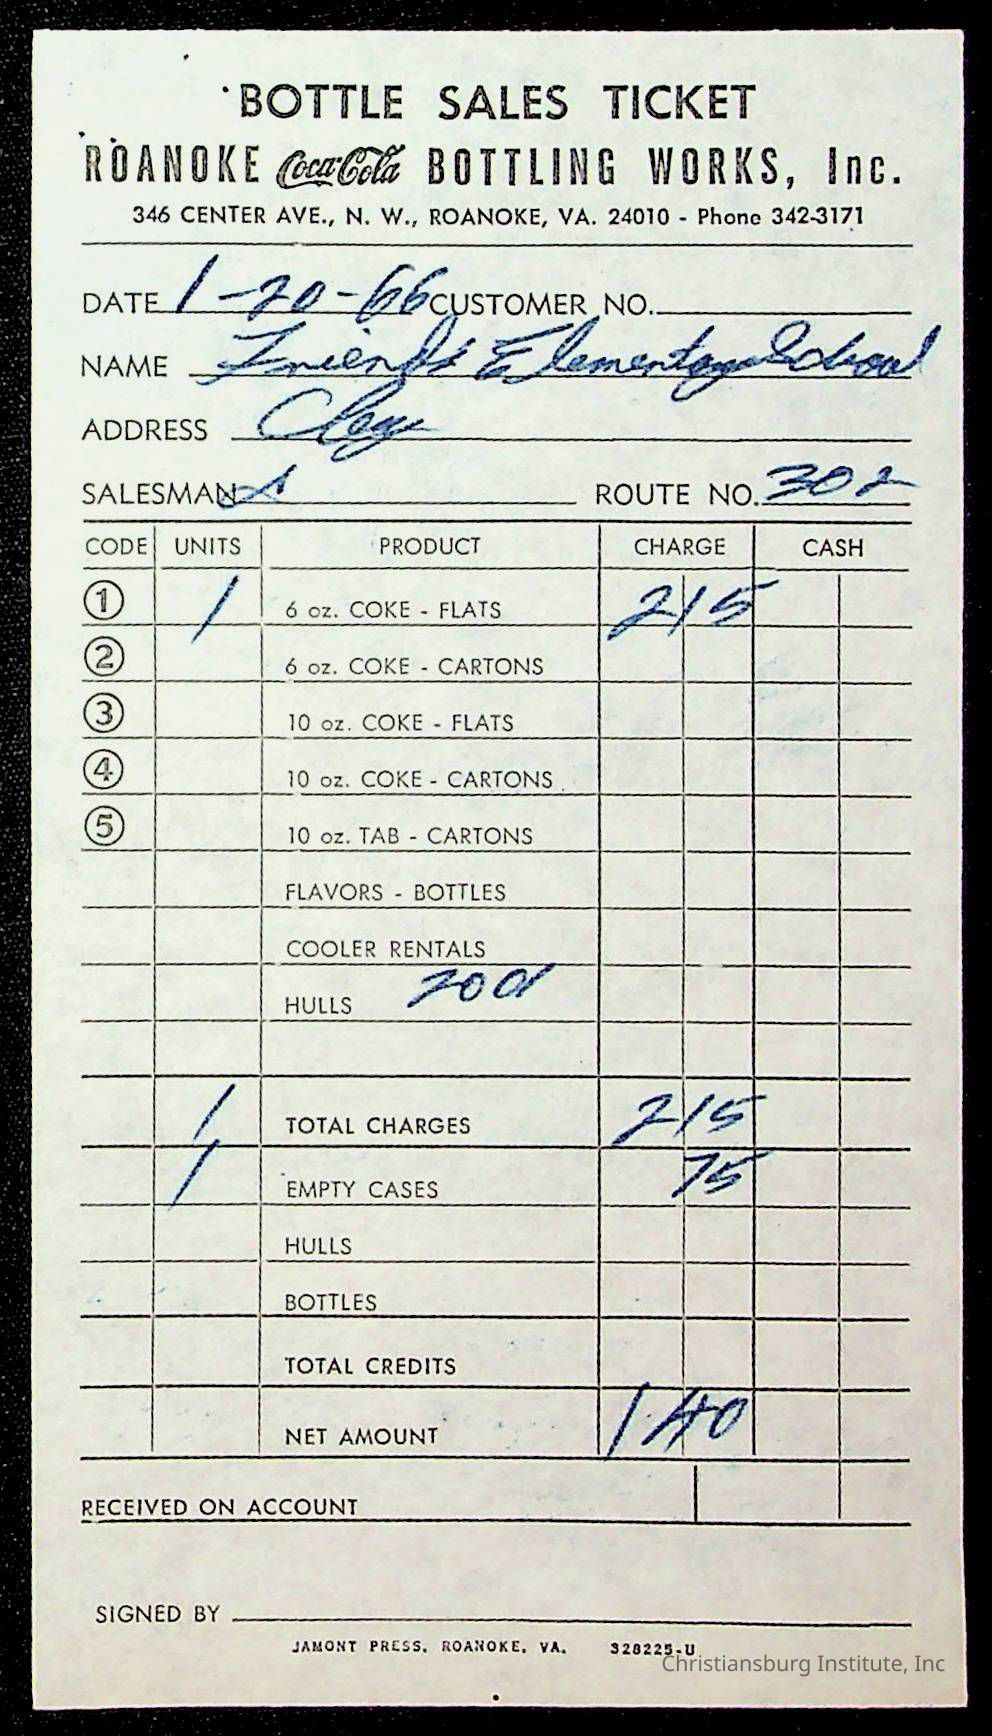 BOTTLE SALES TICKET
ROANOKE Coca-Cola BOTTLING WORKS, Inc.
346 CENTER AVE., N. W., ROANOKE, VA. 24010 - Phone 342-3171
DATE 1-20-66 CUSTOMER NO.
NAME Friends Elementary School
ADDRESS
SALESMAN ROUTE NO. 302
CODE UNITS PRODUCT CHARGE CASH
1 1 6 oz. COKE - FLATS 2 15
2 6 oz. COKE - CARTONS
3 10 oz. COKE - FLATS
4 10 oz. COKE - CARTONS
5 10 oz. TAB - CARTONS
FLAVORS - BOTTLES
COOLER RENTALS
HULLS
1 TOTAL CHARGES 2 15
1 EMPTY CASES 75
HULLS
BOTTLES
TOTAL CREDITS
NET AMOUNT 1 40
RECEIVED ON ACCOUNT
SIGNED BY
JAMONT PRESS, ROANOKE, VA. 328225-U
Christiansburg Institute, Inc